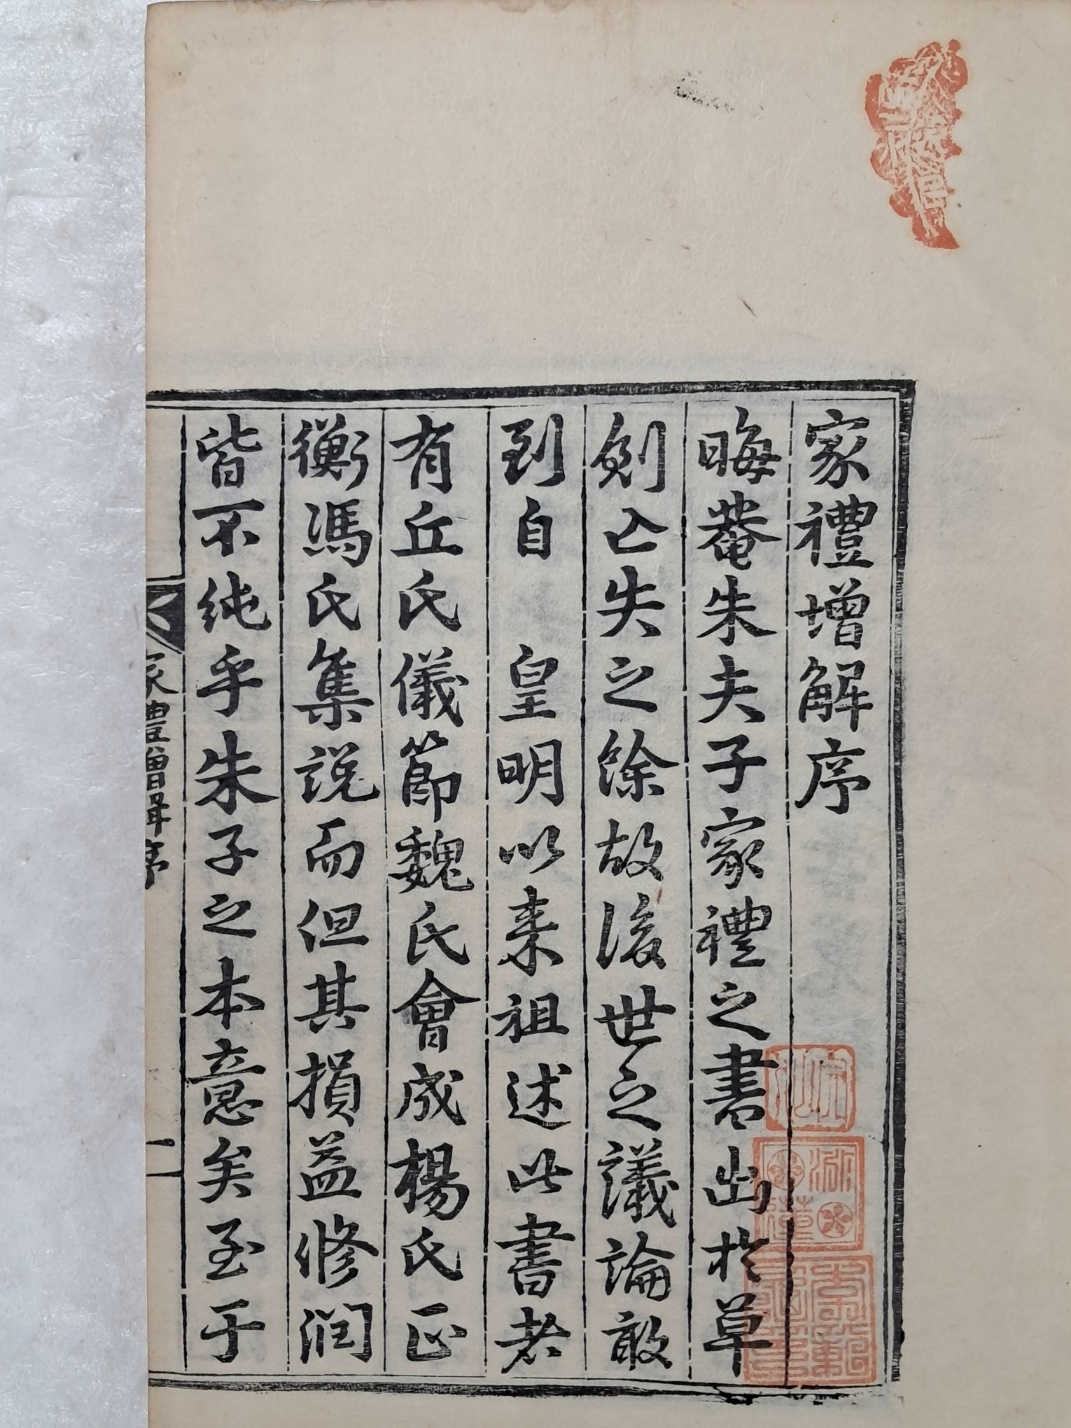 家禮增解序
晦菴朱夫子家禮之書出於草
創亡失之餘故後世之議論敢
到自 皇明以来祖述此書者
有丘氏儀節魏氏會成楊氏正
衡馮氏集說而但其損益修潤
皆不純乎朱子之本意矣至于
家禮增解序
一